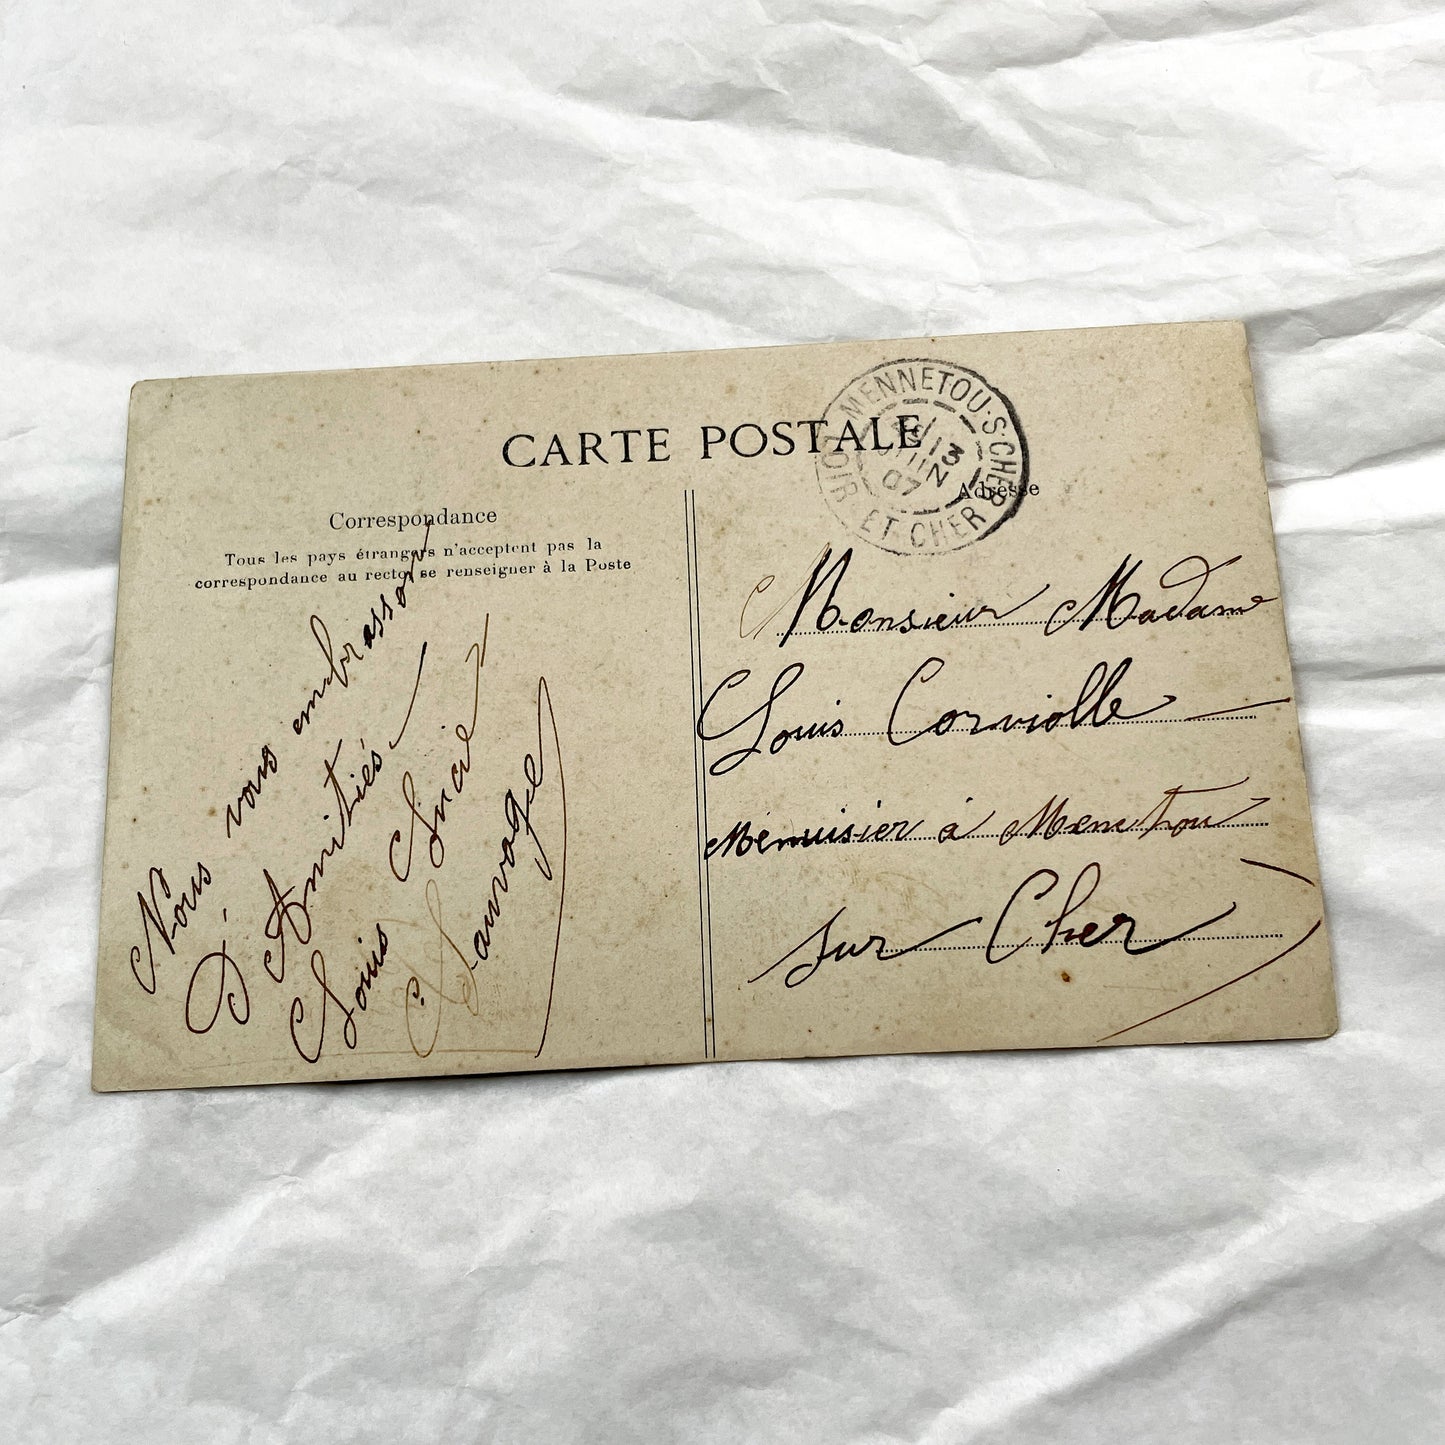 CARTE POSTALE
MENNETOU-S-CHER
LOIR ET CHER
13
07 23
Correspondance
Tous les pays étrangers n'acceptent pas la
correspondance au recto, se renseigner à la Poste
Nous vous embrassons
D'Amitiés
Louis Lucie
Sauvage
Adresse
Monsieur Madame
Louis Corviolle
Menuisier à Menetou
sur Cher